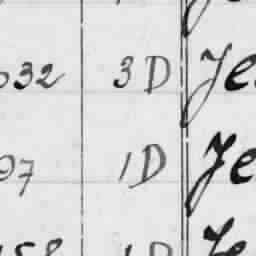 632 3 D Je
97 1 D Je
158 1 D Je